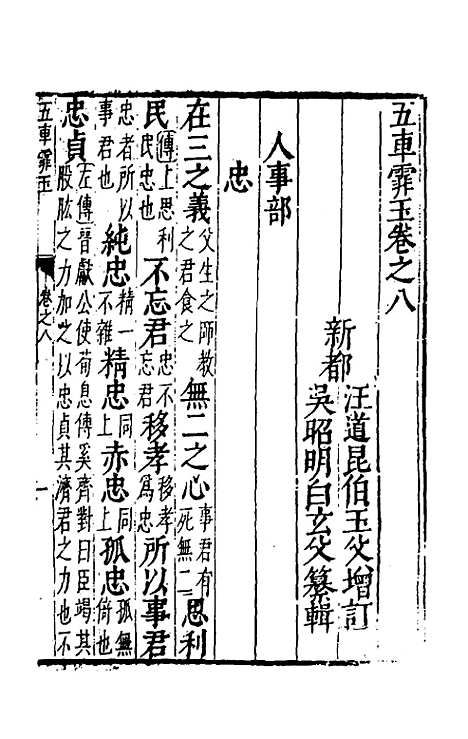 五車霏玉卷之八
新都
汪道昆伯玉父增訂
吳昭明白玄父纂輯
人事部
忠
在三之義父生之師教之君食之 無二之心事君有死無二 思利
民傳上思利民忠也 不忘君忠不忘君 移孝移孝為忠 所以事君
忠者所以事君也 純忠精一不雜 精忠同上 赤忠同上 孤忠孤無倚也
忠貞左傳晉獻公使荀息傳奚齊對曰臣竭其股肱之力加之以忠貞其濟君之力也不
五車霏玉 卷之八 一